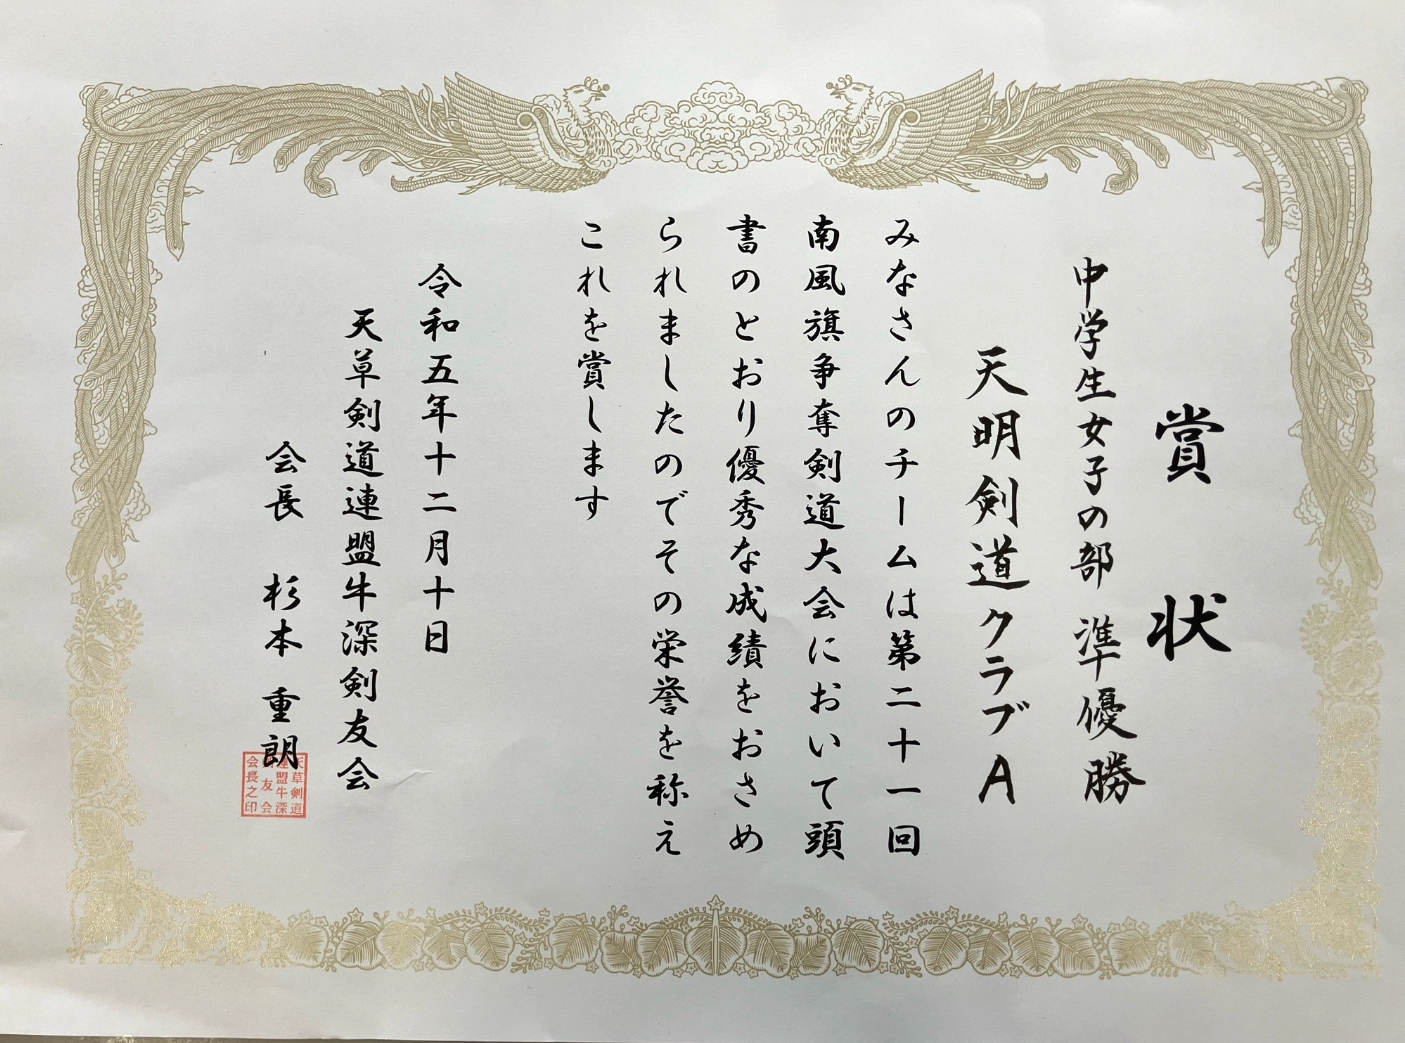 賞状
中学生女子の部 準優勝
天明剣道クラブA
みなさんのチームは第二十一回
南風旗争奪剣道大会において頭
書のとおり優秀な成績をおさめ
られましたのでその栄誉を称え
これを賞します
令和五年十二月十日
天草剣道連盟牛深剣友会
会長 杉本 重朗
天草剣道
連盟牛深
友会
会長之印